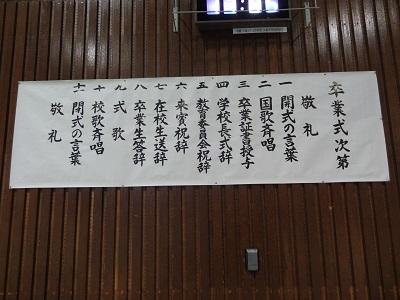 卒業式次第
敬礼
一 開式の言葉
二 国歌斉唱
三 卒業証書授与
四 学校長式辞
五 教育委員会祝辞
六 来賓祝辞
七 在校生送辞
八 卒業生答辞
九 式歌
十 校歌斉唱
十一 閉式の言葉
敬礼